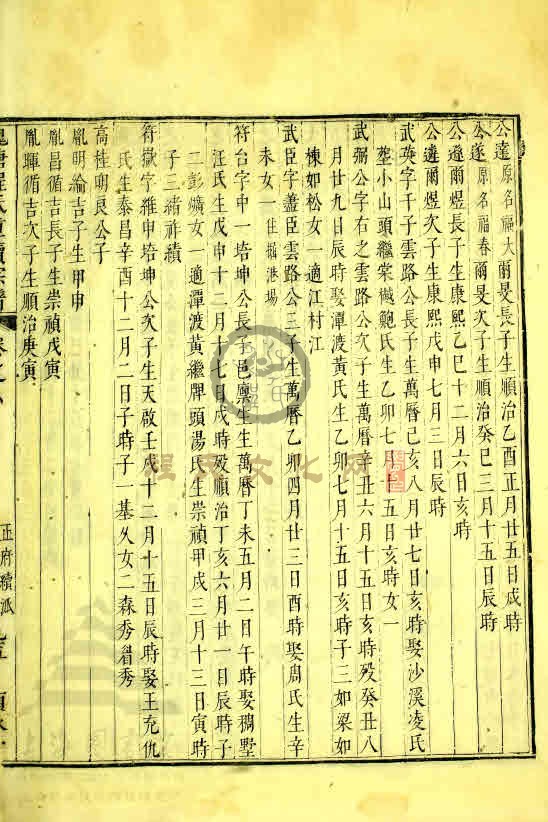 公達原名福大爾旻長子生順治乙酉正月廿五日戌時
公遂原名福春爾旻次子生順治癸巳三月十五日辰時
公邈爾煜長子生康熙乙巳十二月六日亥時
公遴爾煜次子生康熙戊申七月三日辰時
武英字千子雲路公長子生萬曆己亥八月廿七日亥時娶沙溪凌氏
塟小山頭繼棠樾鮑氏生乙卯七月十五日亥時女一
武弼公字右之雲路公次子生萬曆辛丑六月十五日亥時殁癸丑八
月廿九日辰時娶潭渡黃氏生乙卯七月十五日亥時子三如梁如
棟如松女一適江村江
武臣字藎臣雲路公三子生萬曆乙卯四月廿三日酉時娶周氏生辛
未女一住掘港場
符台字申一培坤公長子邑廩生生萬曆丁未五月二日午時娶稠墅
汪氏生戊申十二月十七日戌時殁順治丁亥六月廿一日辰時子
二彭爌女一適潭渡黃繼牌頭湯氏生崇禎甲戌三月十三日寅時
子三緒祚績
符嶽字維申培坤公次子生天啟壬戌十二月十五日辰時娶王充仇
氏生泰昌辛酉十二月二日子時子一基久女二森秀眉秀
高桂明良公子
胤明綸吉子生甲申
胤昌循吉長子生崇禎戊寅
胤暉循吉次子生順治庚寅
槐塘程氏重續宗譜
卷之
正府續派
程氏文化网